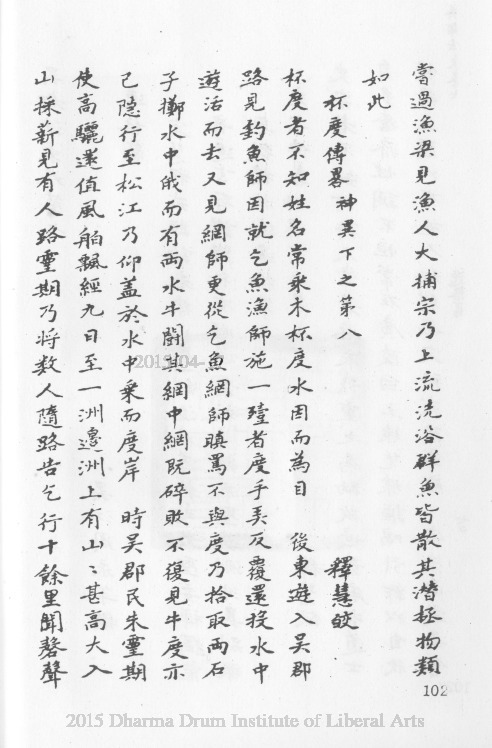 當過漁梁見漁人大捕宗乃上流洗浴群魚皆散其潛拯物類
如此
杯度傳畧神異下之第八　釋慧皎
杯度者不知姓名常乘木杯度水因而為目　後東遊入吳郡
路見釣魚師因就乞魚漁師施一殪者度手弄反覆還投水中
遊活而去又見網師更從乞魚網師瞋罵不與度乃拾取兩石
子擲水中俄而有兩水牛鬪其網中網既碎敗不復見牛度亦
已隱行至松江乃仰盖於水中乗而度岸　時吳郡民朱靈期
使高驪還值風舶飄經九日至一洲邊洲上有山〻甚高大入
山採薪見有人路靈期乃將数人隨路告乞行十餘里聞磬聲
102
2015-04-
2015 Dharma Drum Institute of Liberal Arts